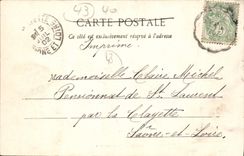 43 40
CARTE POSTALE
Ce côté est exclusivement réservé à l'adresse
Imprimé
Mademoiselle Claire Michel
Pensionnat de St Laurent
par la Clayette
Saône-et-Loire